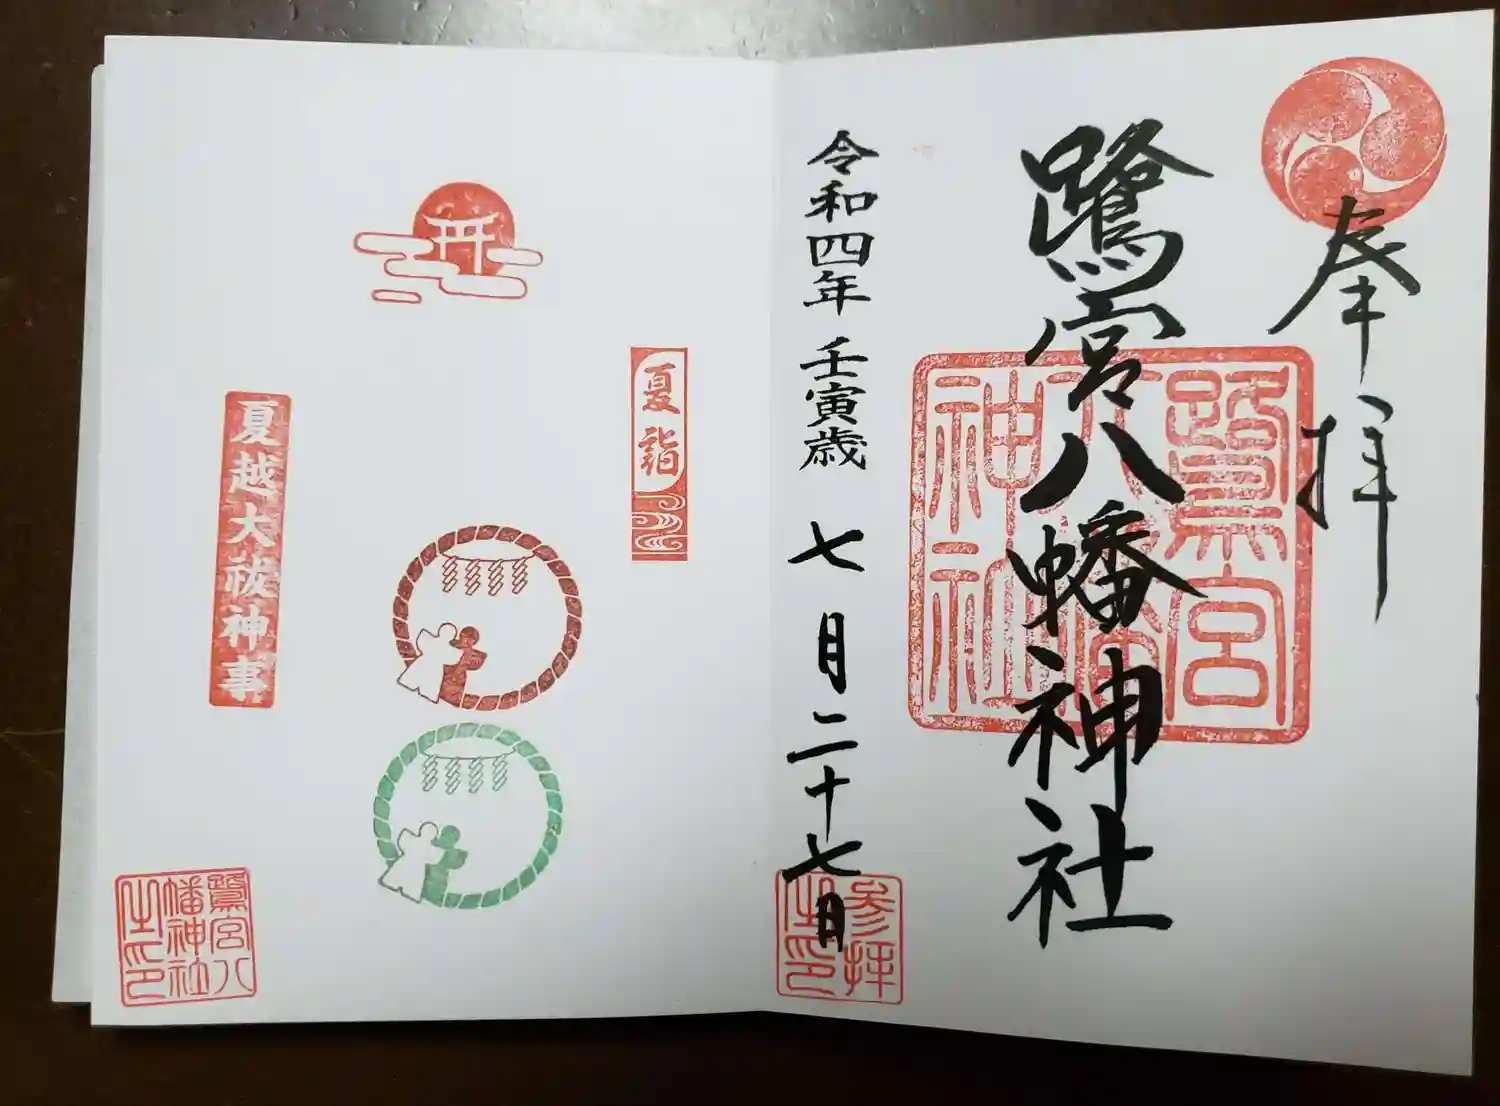 奉拝
鷺宮
八幡
神社
鷺宮八幡神社
令和四年 壬寅歳 七月二十七日
参拝
之印
夏詣
夏越大祓神事
鷺宮八
幡神社
之印